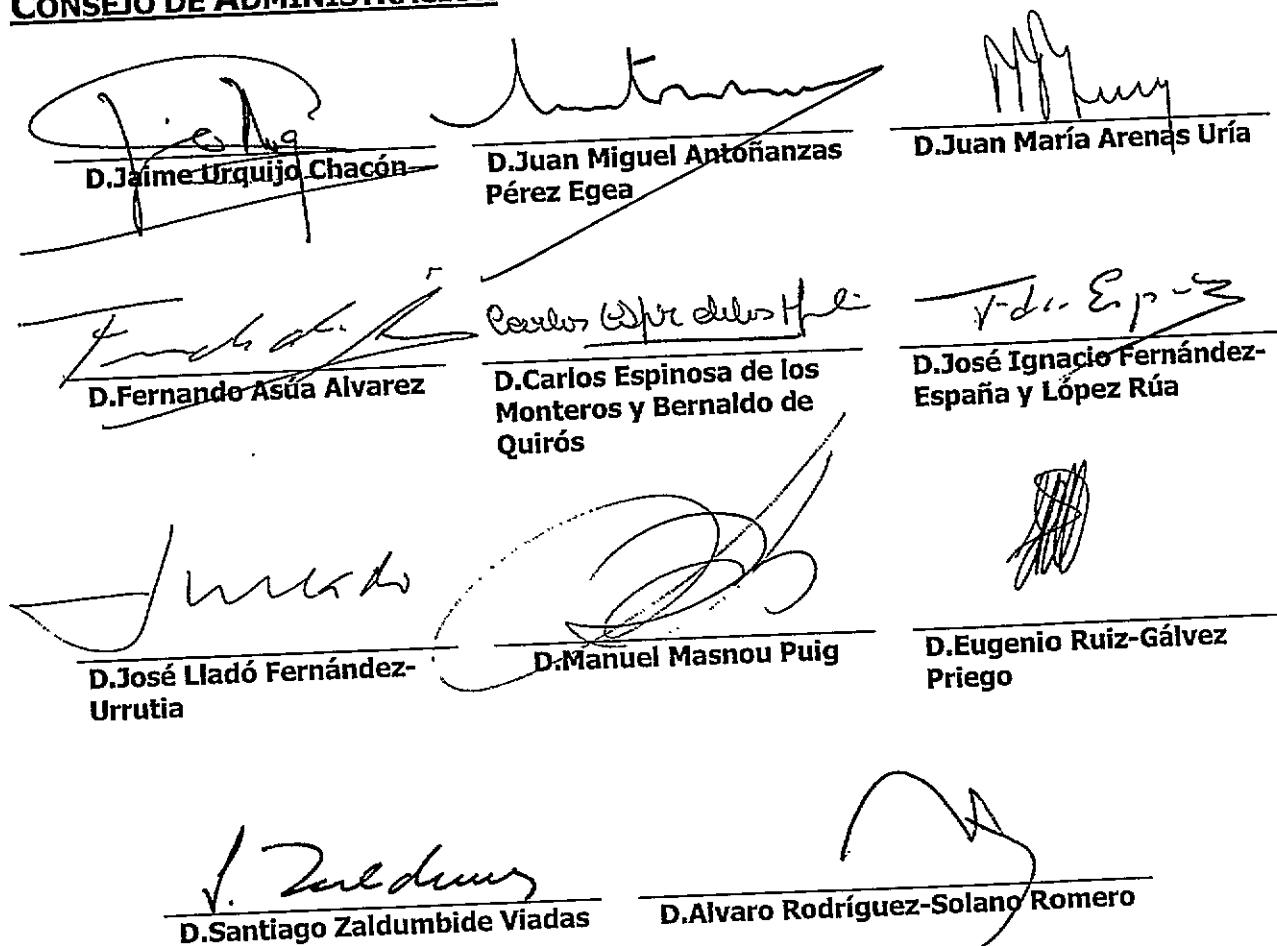 CONSEJO DE ADMINISTRACIÓN
D.Jaime Urquijo Chacón
D.Juan Miguel Antoñanzas
Pérez Egea
D.Juan María Arenas Uría
D.Fernando Asúa Alvarez
Carlos Espi de los
D.Carlos Espinosa de los
Monteros y Bernaldo de
Quirós
D.José Ignacio Fernández-
España y López Rúa
D.José Lladó Fernández-
Urrutia
D.Manuel Masnou Puig
D.Eugenio Ruiz-Gálvez
Priego
D.Santiago Zaldumbide Viadas
D.Alvaro Rodríguez-Solano Romero